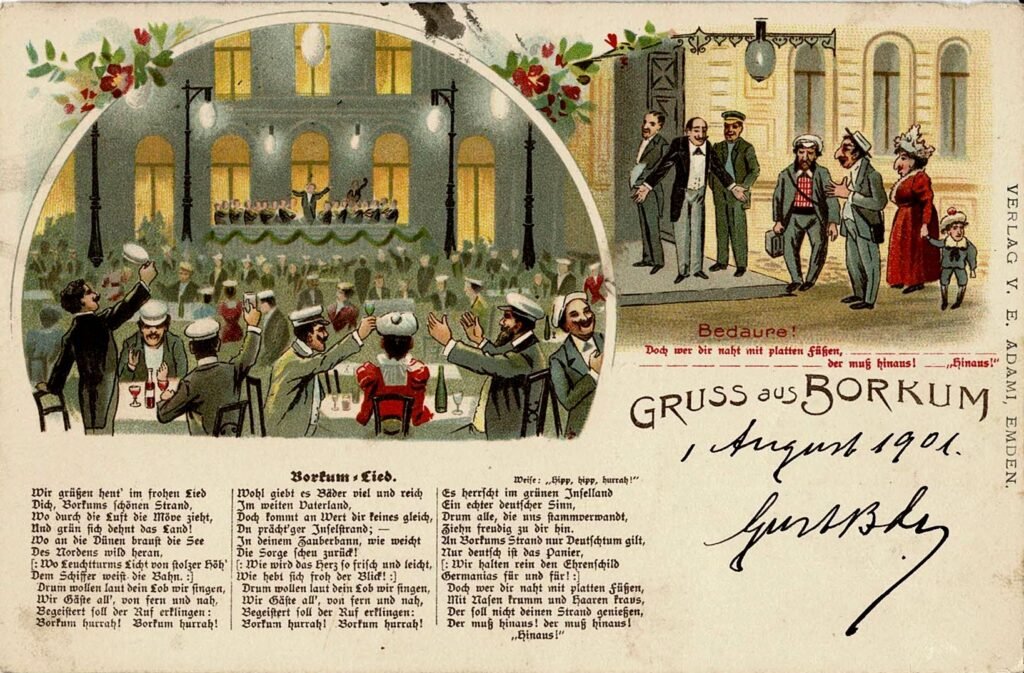 Bedaure!
Doch wer dir naht mit platten Füßen,
der muß hinaus! „Hinaus!"
GRUSS aus BORKUM
1 August 1901.
VERLAG V. E. ADAMI, EMDEN.
Borkum-Lied.
Weise: „Hipp, hipp, hurrah!"
Wir grüßen heut' im frohen Lied
Dich, Borkums schönen Strand,
Wo durch die Luft die Möve zieht,
Und grün sich dehnt das Land!
Wo an die Dünen braust die See
Des Nordens wild heran,
[: Wo Leuchtturms Licht von stolzer Höh'
Dem Schiffer weist die Bahn. :]
Drum wollen laut dein Lob wir singen,
Wir Gäste all', von fern und nah,
Begeistert soll der Ruf erklingen:
Borkum hurrah! Borkum hurrah!
Wohl giebt es Bäder viel und reich
Im weiten Vaterland,
Doch kommt an Wert dir keines gleich,
Du prächt'ger Inselstrand; —
In deinem Zauberbann, wie weicht
Die Sorge scheu zurück!
[: Wie wird das Herz so frisch und leicht,
Wie hebt sich froh der Blick! :]
Drum wollen laut dein Lob wir singen,
Wir Gäste all', von fern und nah,
Begeistert soll der Ruf erklingen:
Borkum hurrah! Borkum hurrah!
Es herrscht im grünen Inselland
Ein echter deutscher Sinn,
Drum alle, die uns stammverwandt,
Ziehn freudig zu dir hin.
An Borkums Strand nur Deutschtum gilt,
Nur deutsch ist das Panier,
[: Wir halten rein den Ehrenschild
Germanias für und für! :]
Doch wer dir naht mit platten Füßen,
Mit Nasen krumm und Haaren kraus,
Der soll nicht deinen Strand genießen,
Der muß hinaus! der muß hinaus!
„Hinaus!"